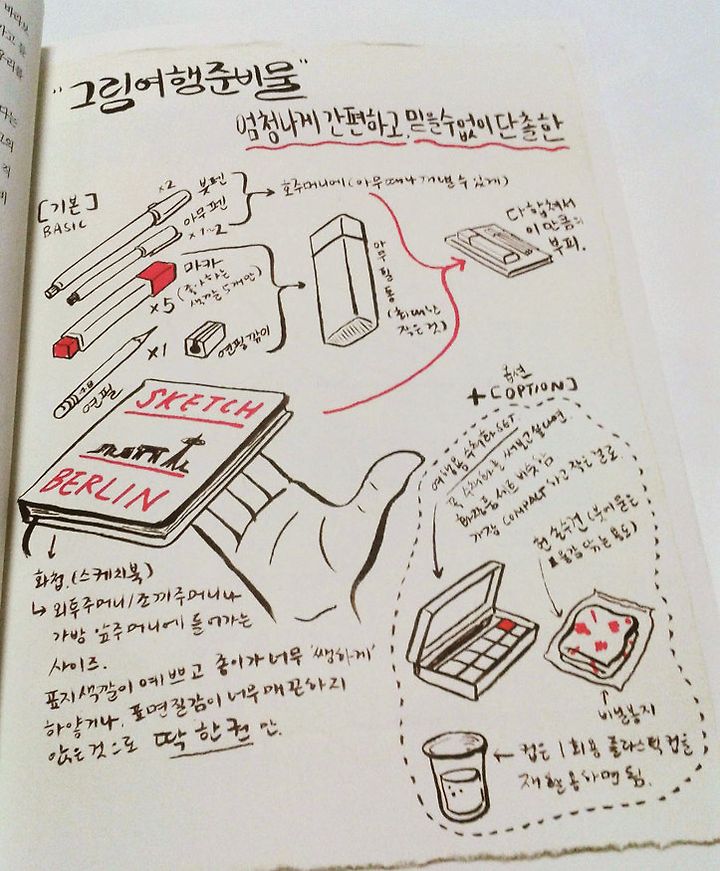 "그림여행준비물"
엄청나게 간편하고, 믿을수없이 단출한
[기본]
BASIC
x2
붓펜
아무펜
x1~2
호주머니에 (아무때나 꺼낼 수 있게)
마카
x5
(좋아하는
색깔 5개만)
x1
연필깎이
연필
아무 필통
(최대한
작은것)
다 합쳐서
이만큼의
부피.
SKETCH
BERLIN
화첩. (스케치북)
↳ 외투주머니/조끼주머니나
가방 앞주머니에 들어가는
사이즈.
표지색깔이 예쁘고 종이가 너무 '쌩하게'
하얗거나, 표면질감이 너무 매끈하지
않은것으로 딱 한권 만.
옵션
+[OPTION]
여행용 수채화 SET
화장품 세트 비슷함
가장 COMPACT 하고 작은걸로
헌 손수건 (붓에묻은
물감 닦는 용도)
비닐봉지
← 컵은 1회용 플라스틱컵을
재활용하면 됨.